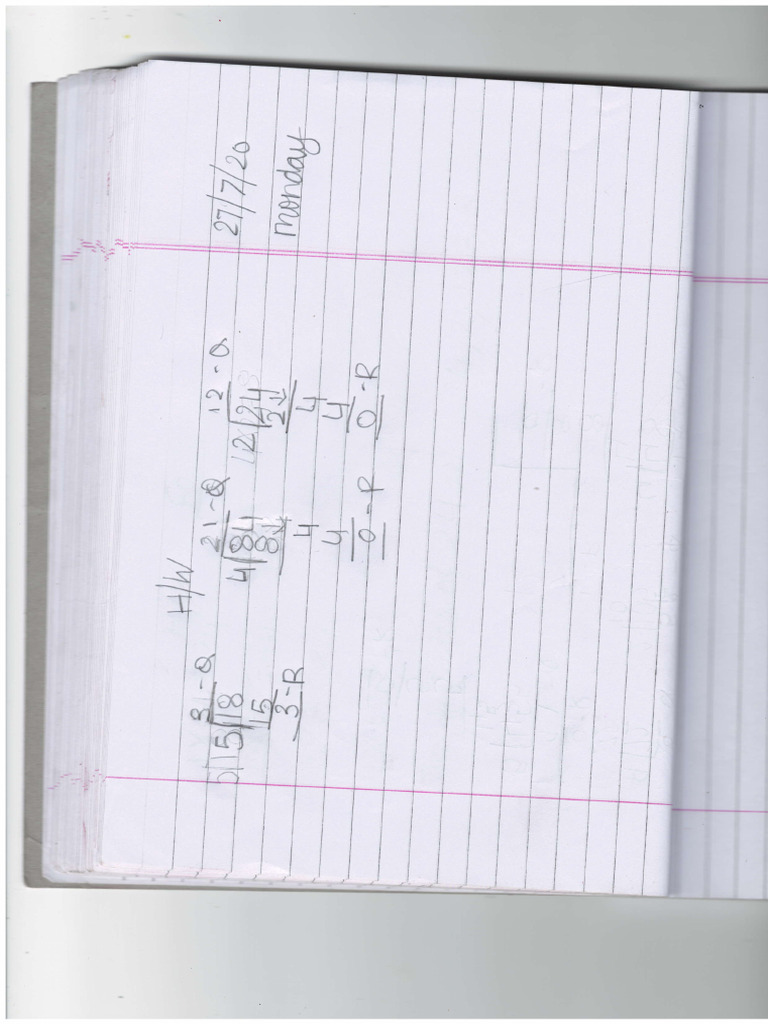 H/W
27/7/20
monday
3 - Q
5)18
15
3 - R
21 - Q
4)84
8↓
4
4
0 - R
12 - Q
2)24
2↓
4
4
0 - R